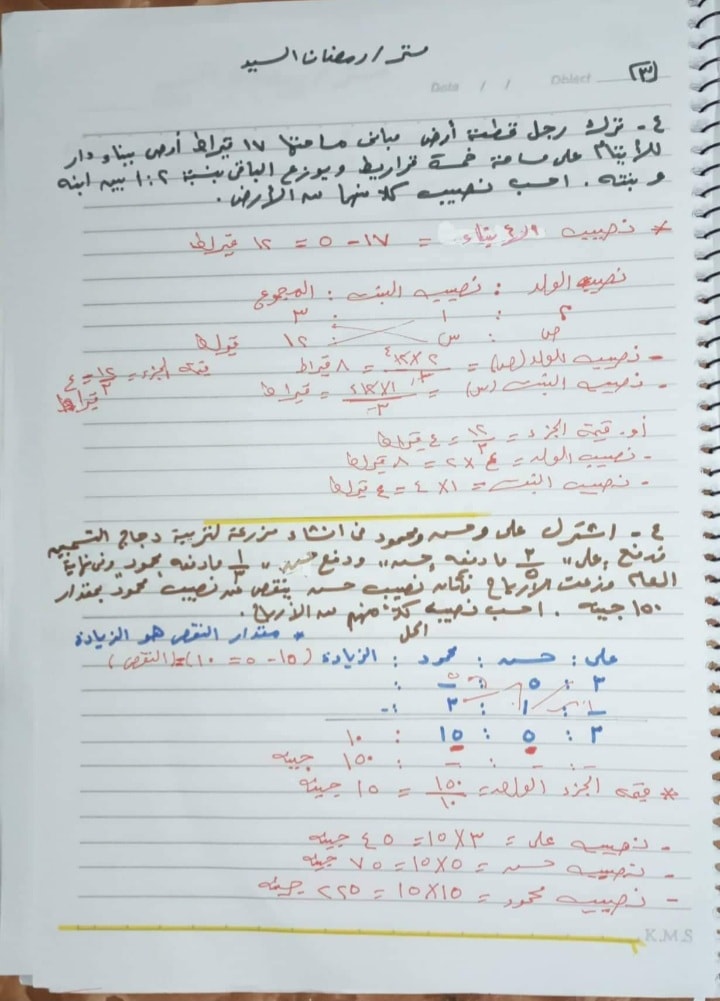 مستر / رمضان السيد
(٣)
Date / / Object
٤ - ترك رجل قطعة أرض مبانى مساحتها ١٧ قيراط أوصى ببناء دار
للأيتام على مساحة خمسة قراريط ويوزع الباقى بنسبة ٢ : ١ بين ابنه
وبنته . احسب نصيب كلا منهما من الأرض .
* نصيب = ١٧ - ٥ = ١٢ قيراط
نصيب الولد : نصيب البنت : المجموع
٢ : ١ : ٣
ص : س : ١٢ قيراط
- نصيب الولد (ص) = = ٨ قيراط
قيمة الجزء = ١٢/٣ = ٤ قيراط
- نصيب البنت (س) = = قيراط
أو. قيمة الجزء = ١٢/٣ = ٤ قيراط
- نصيب الولد = ٤ × ٢ = ٨ قيراط
- نصيب البنت = ١ × ٤ = ٤ قيراط
٤ - اشترك على وحسن ومحمود فى انشاء مزرعة لتربية دجاج التسمين
فدفع "على" مادفعه "حسن" ودفع حسن ١/٣ مادفعه محمود وفى نهاية
العام وزعت الأرباح فكان نصيب حسن ينقص عن نصيب محمود بمقدار
١٥٠ جنيه . احسب نصيب كلا منهم من الأرباح .
الحل
* مقدار النقص هو الزيادة
على : حسن : محمود : الزيادة (١٥ - ٥ = ١٠) = (النقص)
٣ : ٥ : -
- : ١ : ٣ : -
٣ : ٥ : ١٥ : ١٠
- : - : - : ١٥٠ جنيه
* قيمة الجزء الواحد = ١٥٠/١٠ = ١٥ جنيه
- نصيب على = ٣ × ١٥ = ٤٥ جنيه
- نصيب حسن = ٥ × ١٥ = ٧٥ جنيه
- نصيب محمود = ١٥ × ١٥ = ٢٢٥ جنيه
K.M.S